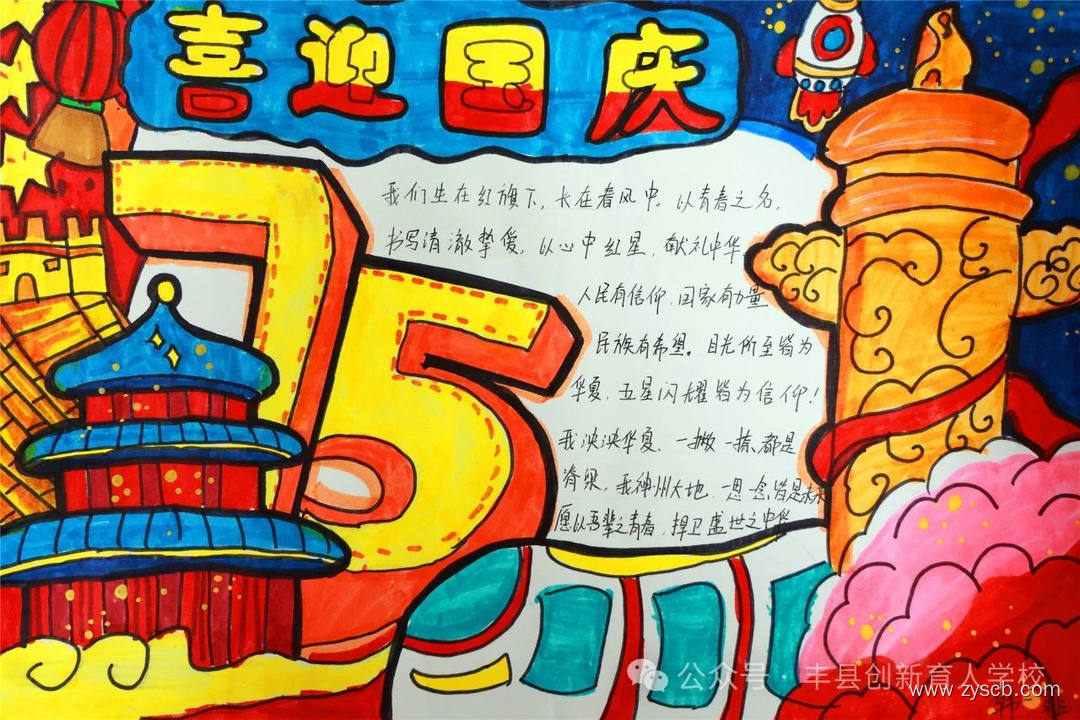 喜迎国庆
75
我们生在红旗下,长在春风中。以青春之名,
书写清澈挚爱,以心中红星,献礼中华
人民有信仰,国家有力量
民族有希望。目光所至皆为
华夏,五星闪耀皆为信仰!
我泱泱华夏,一撇一捺都是
脊梁,我神州大地,一思一念皆是
愿以吾辈之青春,捍卫盛世之中华
公众号·丰县创新育人学校
www.zyscb.com